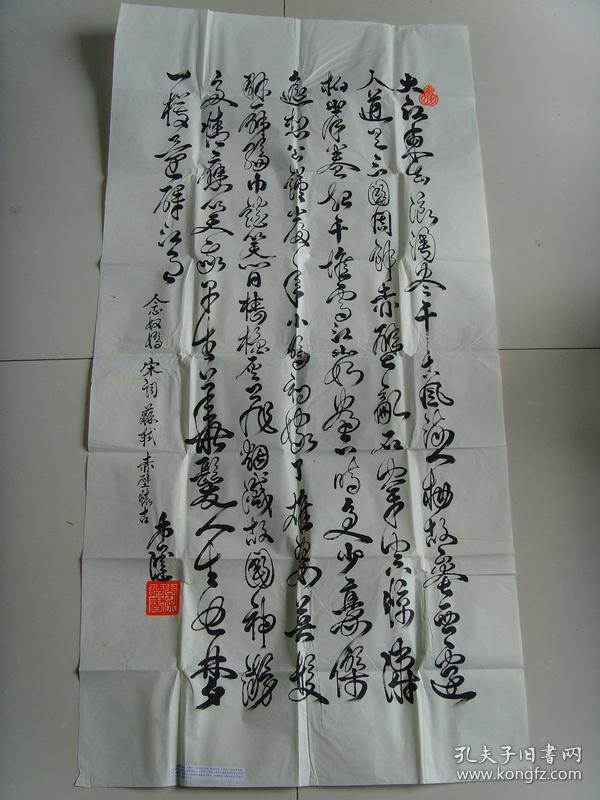 大江東去浪淘尽千古風流人物故壘西邊
人道是三國周郎赤壁亂石穿空驚濤
拍岸卷起千堆雪江山如畫一時多少豪傑
遙想公瑾當年小喬初嫁了雄姿英發
羽扇綸巾談笑間檣櫓灰飛烟滅故國神游
多情應笑我早生華髮人生如夢
一樽還酹江月
念奴嬌 宋詞 蘇軾 赤壁懷古
孔夫子旧书网
www.kongfz.com